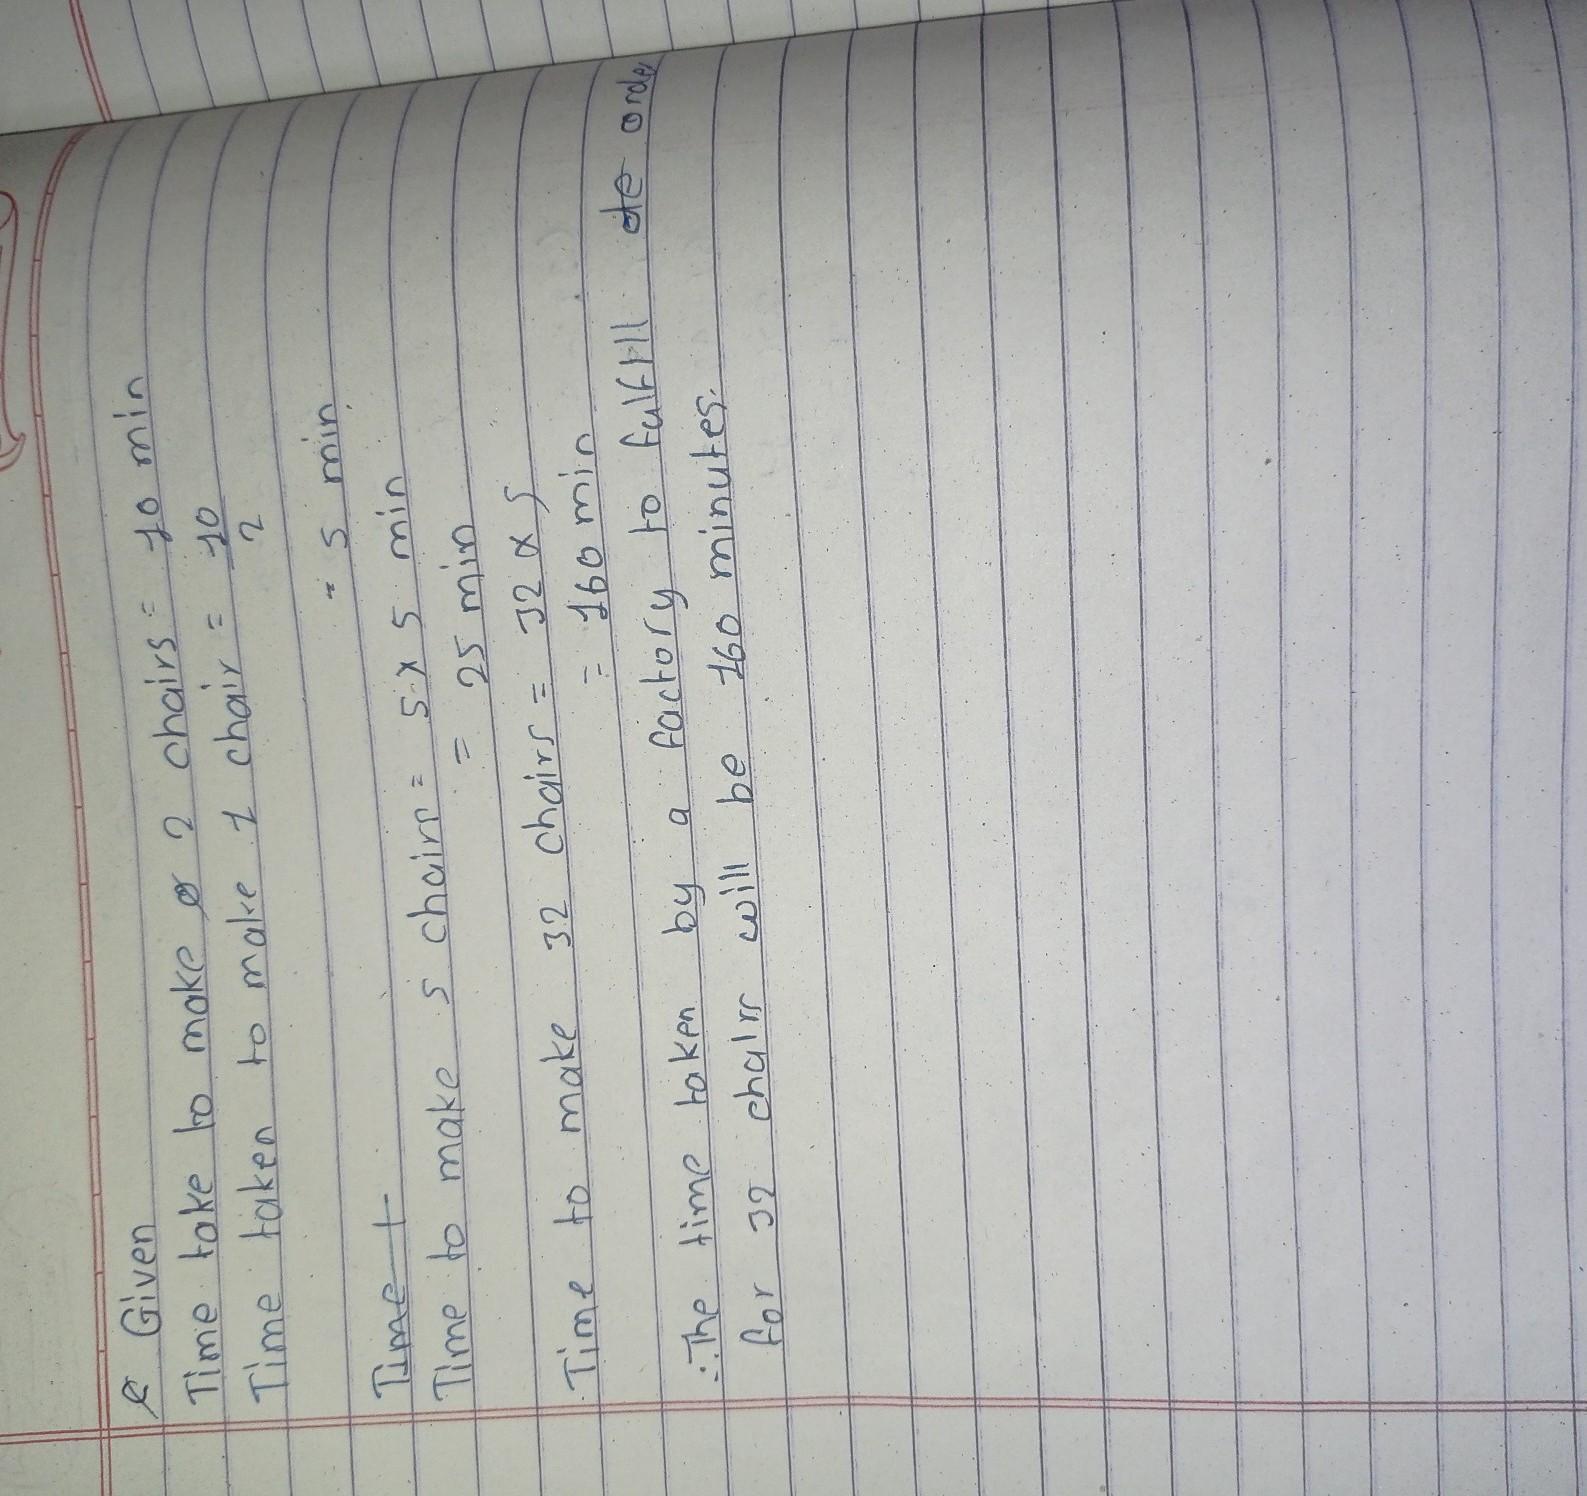 Given
Time take to make 2 chairs = 10 min
Time taken to make 1 chair = 10/2
= 5 min
Time t
Time to make 5 chairs = 5 x 5 min
= 25 min
Time to make 32 chairs = 32 x 5
= 160 min
∴ The time taken by a factory to fulfill order
for 32 chairs will be 160 minutes.